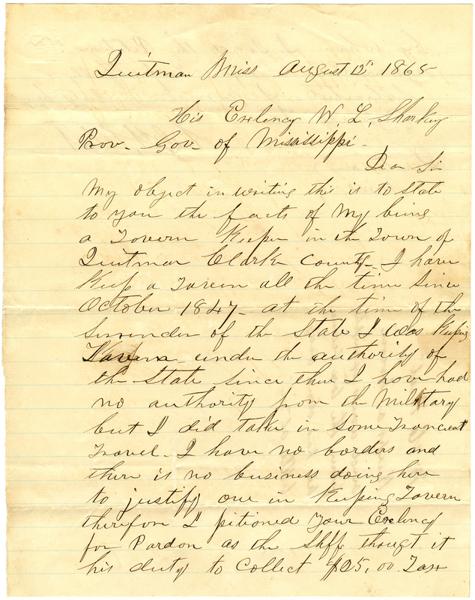 Quitman Miss August 12th 1865
His Exelency W. L. Sharkey
Prov. Gov. of Mississippi
Dear Sir
My object in writing this is to State
to you the facts of My being
a Tovern Keeper in the Town of
Quitman Clarke County I have
Keep a Tavern all the time Since
October 1847 - at the time of the
surrender of the State I was Keeping
Tavern under the authority of
the State since then I have had
no authority from the Military
but I did take in some Trancient
Travel - I have no borders and
there is no business doing here
to justify one in Keeping Tavern
therefore I pitioned your Exelency
for Pardon as the Shff thought it
his duty to Collect $25,00 Tax